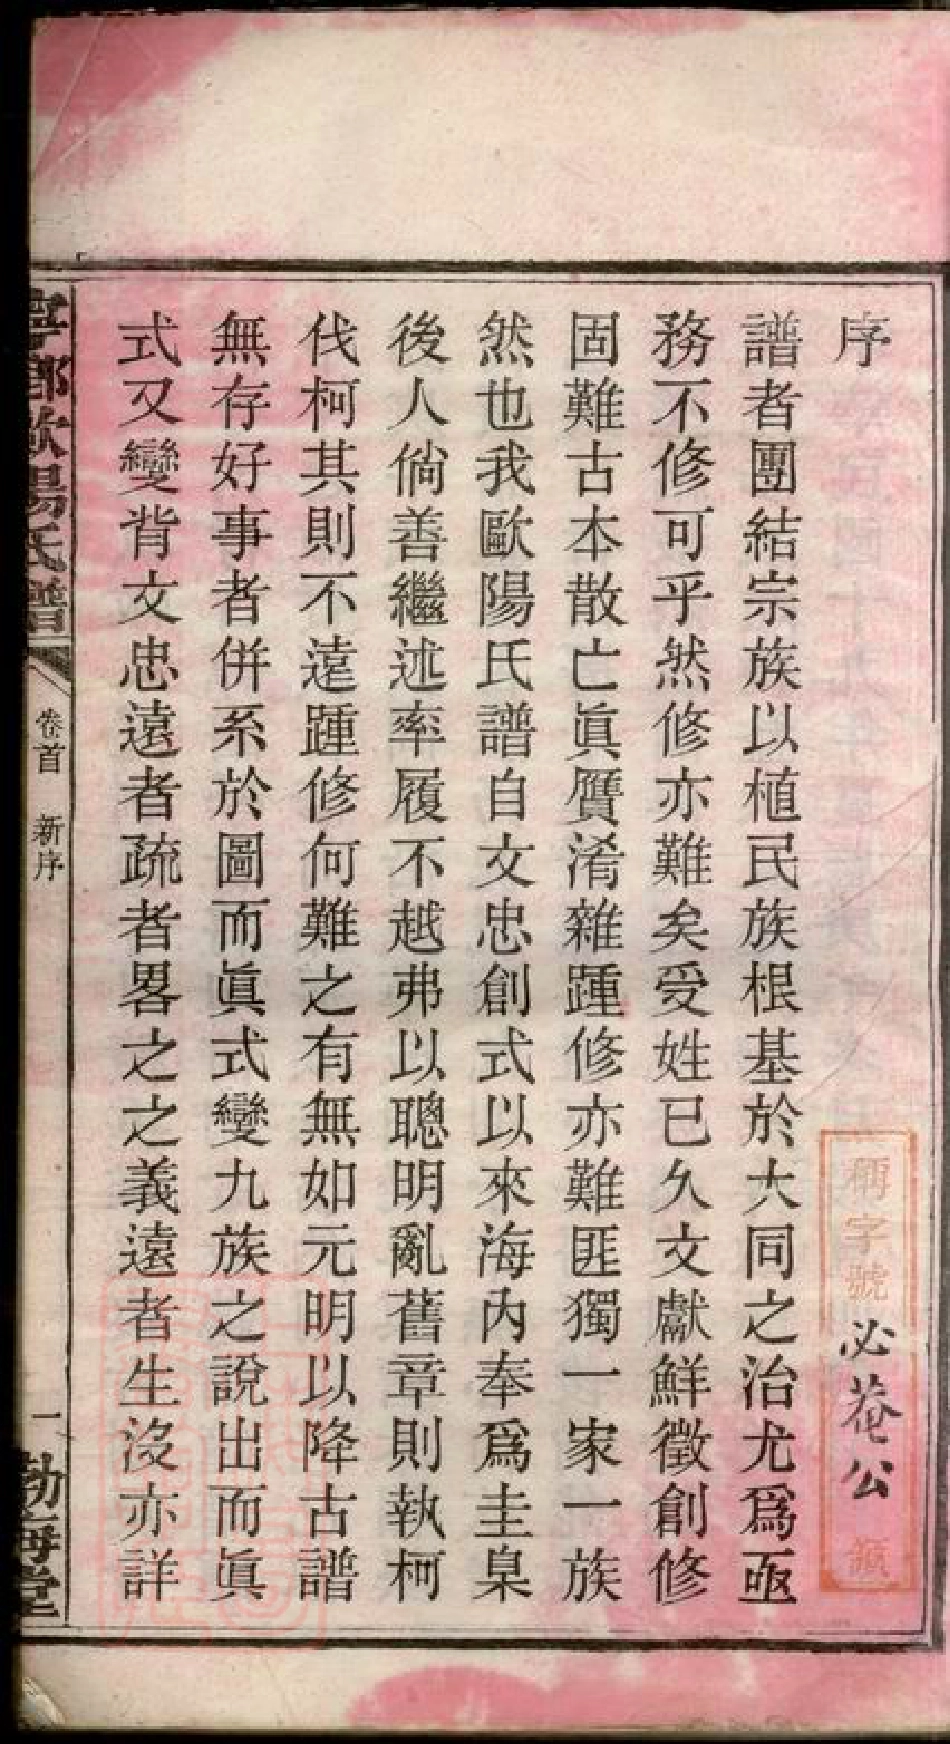 序
譜者團結宗族以植民族根基於大同之治尤爲亟
務不修可乎然修亦難矣受姓已久文獻鮮徵創修
固難古本散亡眞贋淆雜踵修亦難匪獨一家一族
然也我歐陽氏譜自文忠創式以來海內奉爲圭臬
後人倘善繼述率履不越弗以聰明亂舊章則執柯
伐柯其則不遠踵修何難之有無如元明以降古譜
無存好事者併系於圖而眞式變九族之說出而眞
式又變背文忠遠者疏者畧之之義遠者生沒亦詳
稱字號
必菴公
領
寧鄉歐陽氏譜
卷首 新序
一
勃海堂